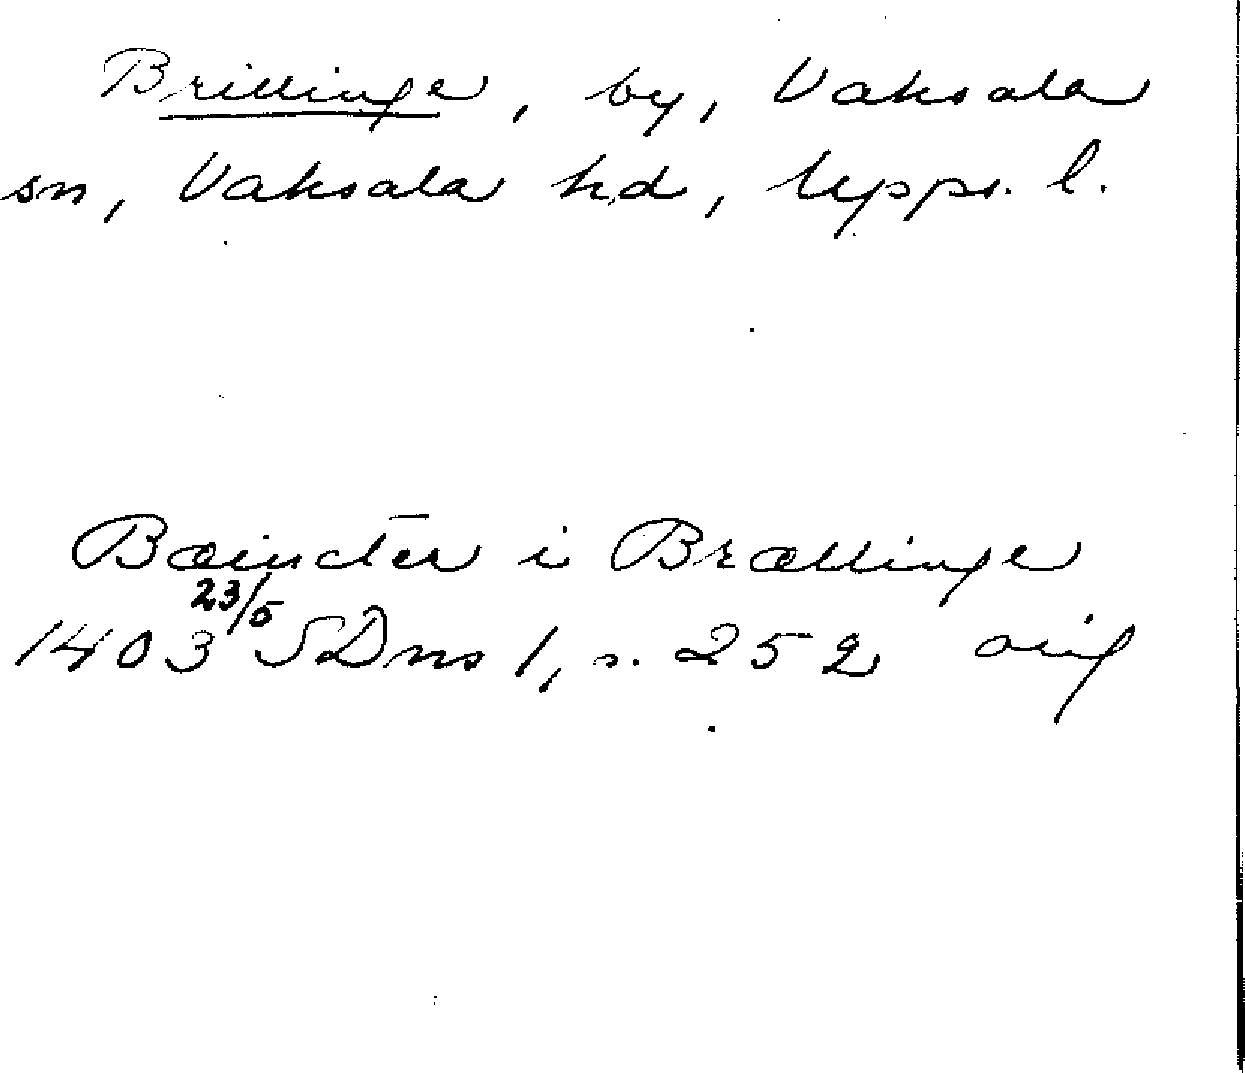 Brillinge, by, Vaksala
sn, Vaksala hd, Upps. l.
i Brællinge
1403 23/5 SDns 1, s. 252 orig